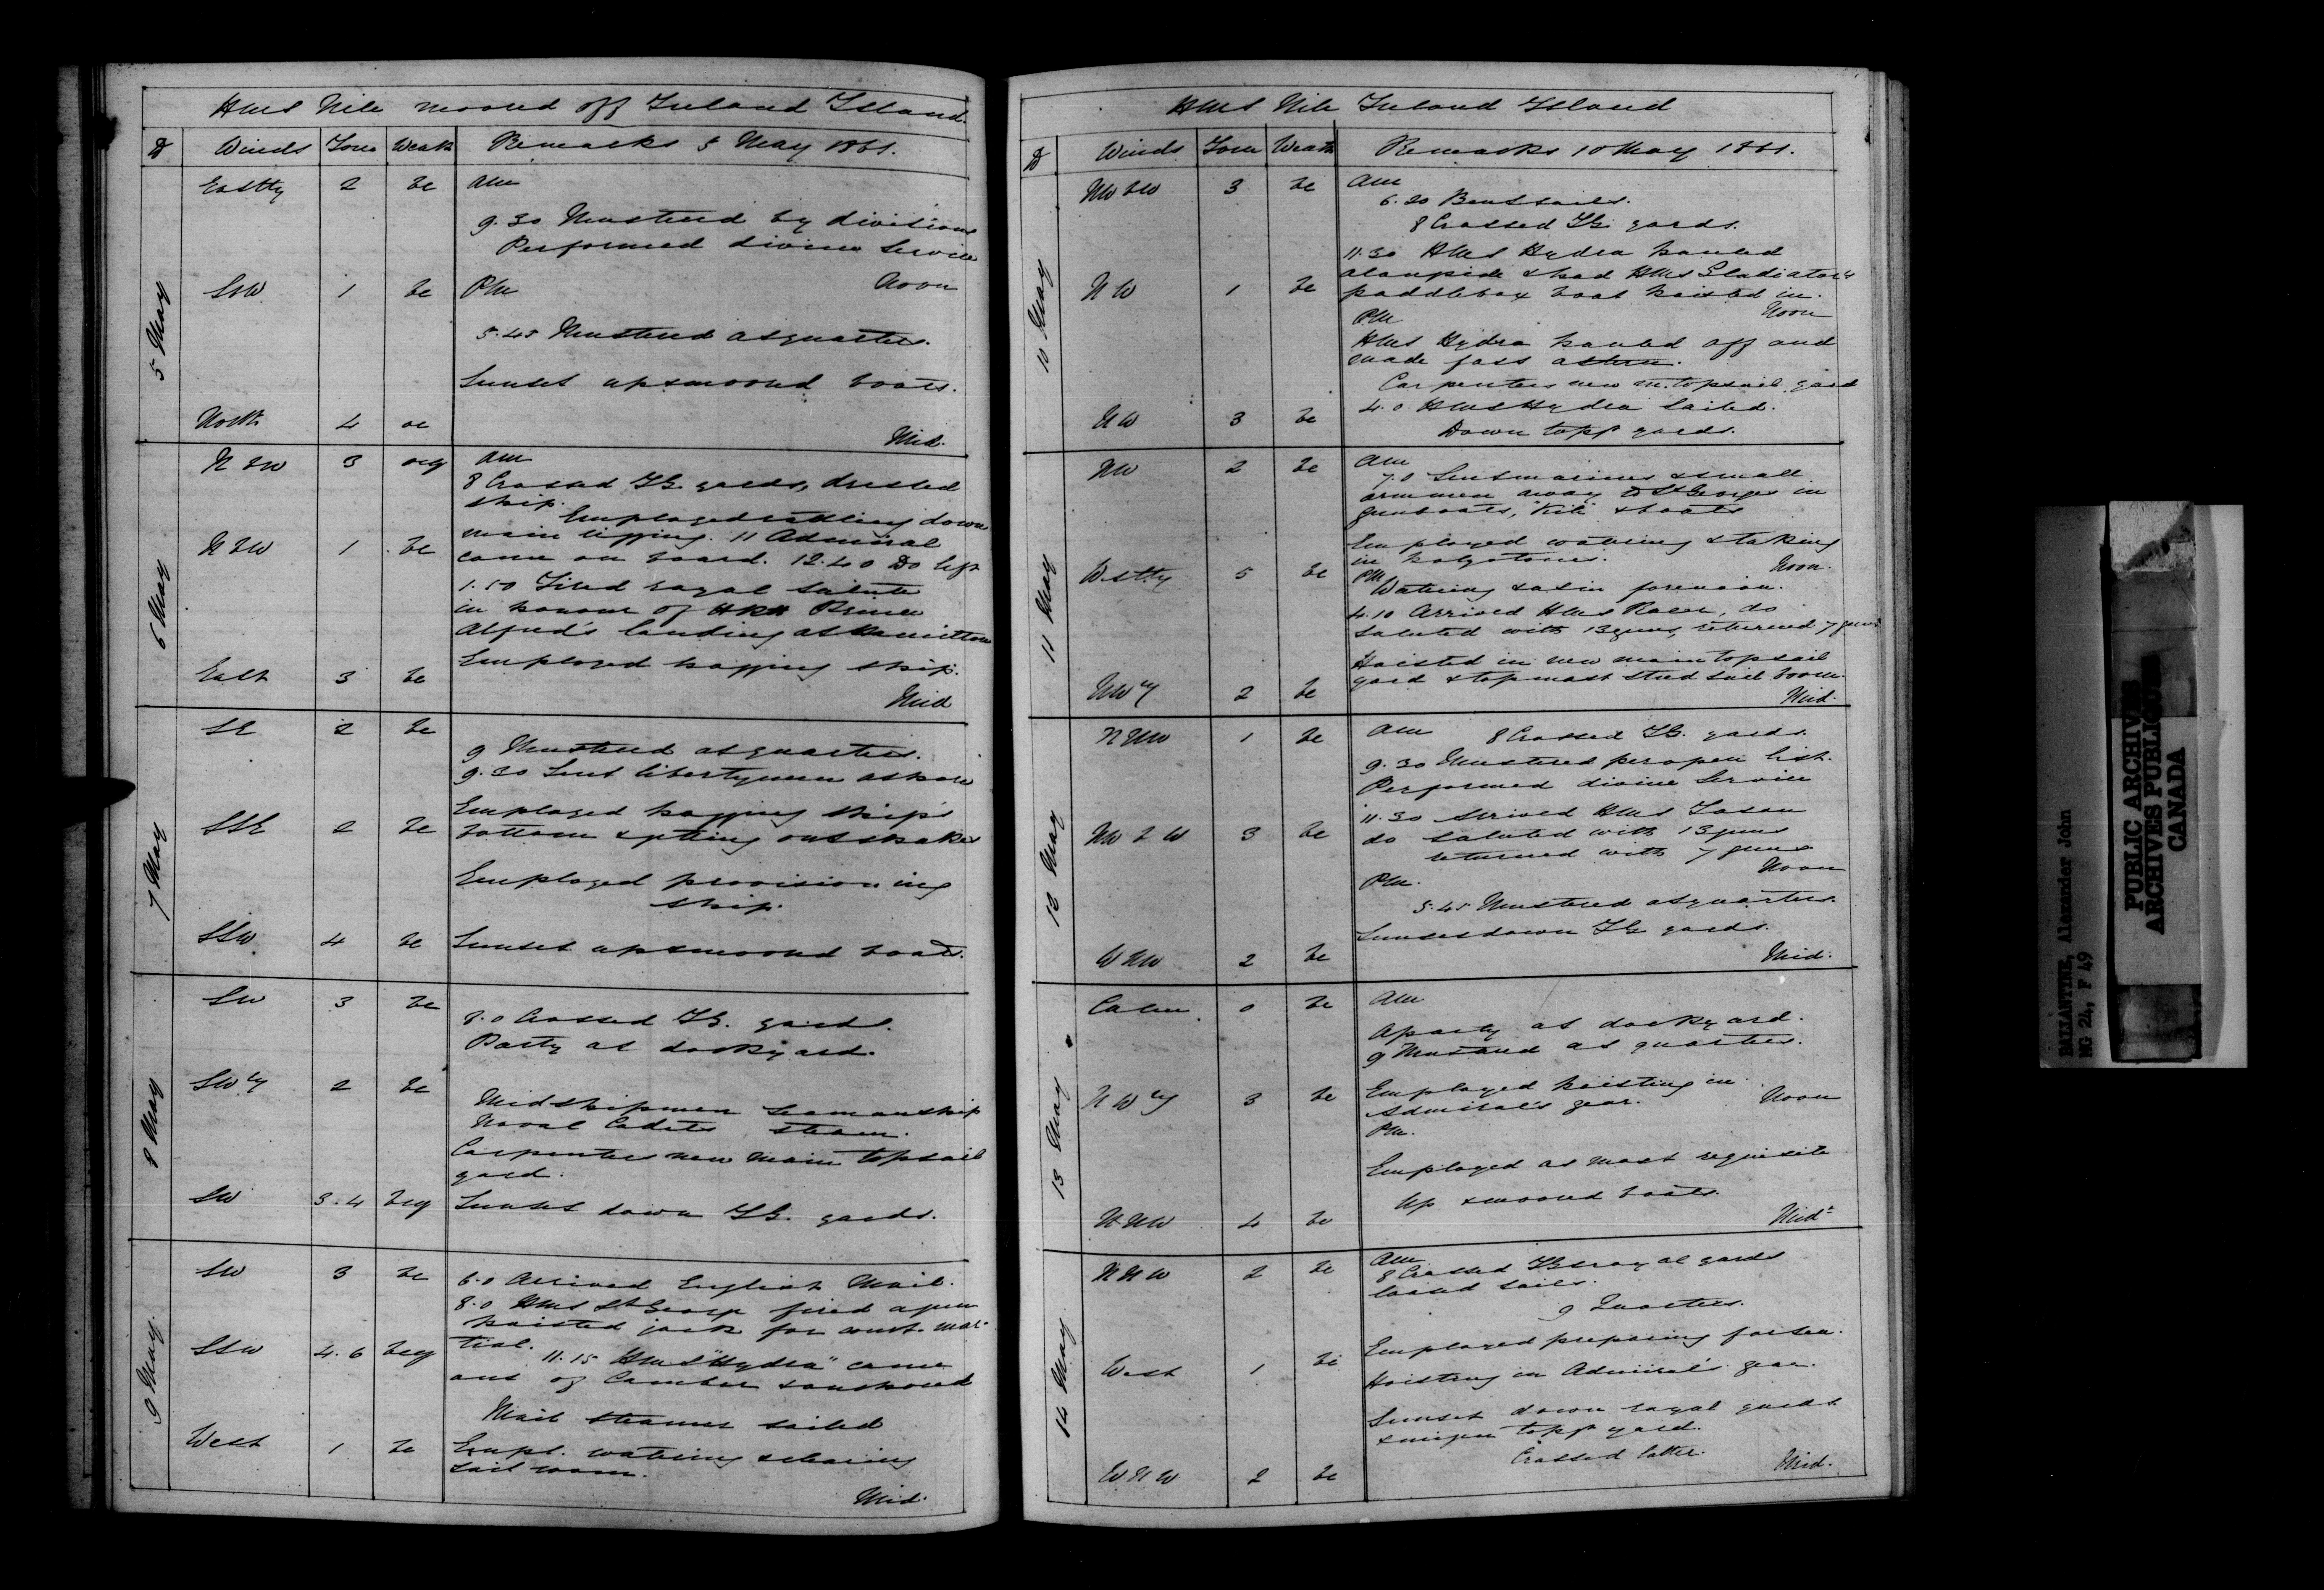 HMS Nile moored off Ireland Island.
D Winds Force Weath Remarks 5 May 1861.
5 May
Eastly 2 bc am
9.30 Mustered by divisions
Performed divine Service
Noon
SSW 1 bc PM
5.45 Mustered at quarters.
Sunset up & moored boats.
North 4 oc
Mid.
6 May
N & W 3 ocg am
8 Crossed TG. yards, dressed
ship.
Employed rattling down
N & W 1 bc main rigging. 11 Admiral
came on board. 12.40 Do left
1.50 Fired royal Salute
in honour of HRH Prince
Alfred's landing at Hamilton
East 3 bc Employed hogging ship.
Mid
7 May
SE 2 bc
9 Mustered at quarters.
9.30 Sent libertymen ashore
SSE 2 bc Employed hogging ship's
bottom & ptting out shakes
Employed provisioning
ship.
SSW 4 bc Sunset up & moored boats.
8 May
SW 3 bc
8.0 Crossed TG. yards.
Party at dockyard.
SWly 2 bc
Midshipmen Seamanship
Naval Cadets steam.
Carpenters new main topsail
yard.
SW 3.4 bcq Sunset down TG. yards.
9 May.
SW 3 bc 6.0 Arrived English Mail.
8.0 HMS St George fired a gun
hoisted jack for court mar-
SSW 4.6 bcq tial.
11.15 HMS "Hydra" came
out of Camber & anchored
Mail steamer sailed
West 1 bc Empl. watering & clearing
sail room.
Mid.
HMS Nile Ireland Island
D Winds Force Weath Remarks 10 May 1861.
10 May
NW & W 3 bc am
6.20 Bent sails.
8 Crossed TG. yards.
11.30 HMS Hydra hauled
alongside & had HMS Gladiator's
NW 1 bc paddlebox boat hoisted in.
PM Noon
HMS Hydra hauled off and
made fast astern.
Carpenters new m. topsail yard
NW 3 bc 4.0 HMS Hydra Sailed.
Down topgt yards.
11 May
NW 2 bc am
7.0 Sent marines & small
arm men away to St Georges in
gunboats, "Kite" & boats
Employed watering & taking
in holystones. Noon.
Westly 5 bc PM
Watering & as in forenoon.
4.10 Arrived HMS Racer, do
Saluted with 13 guns, returned 7 guns
Hoisted in new main topsail
yard & topmast stud sail boom.
NWly 2 bc Mid.
12 May
NNW 1 bc am 8 Crossed TG. yards.
9.30 Mustered per open list.
Performed divine Service
11.30 Arrived HMS Jason
NW & W 3 bc do saluted with 13 guns
returned with 7 guns
PM. Noon
5.45 Mustered at quarters.
Sunset down TG yards.
WNW 2 bc Mid.
13 May
Calm. 0 bc am
A party at dockyard.
9 Mustered at quarters.
NWly 3 bc Employed hoisting in
Admiral's gear. Noon
PM.
Employed as most requisite
Up & moored boats.
NNW 4 bc Midt
14 May
NNW 2 bc am
8 Crossed TG & royal yards
loosed sails.
9 Quarters.
Employed preparing for sea.
West 1 bc
Hoisting in Admiral's gear.
Sunset down royal yards
& mizen topgt yard.
Crossed latter.
WNW 2 bc Mid.
BALLANTINE, Alexander John
MG 24, F 49
PUBLIC ARCHIVES
ARCHIVES PUBLIQUES
CANADA